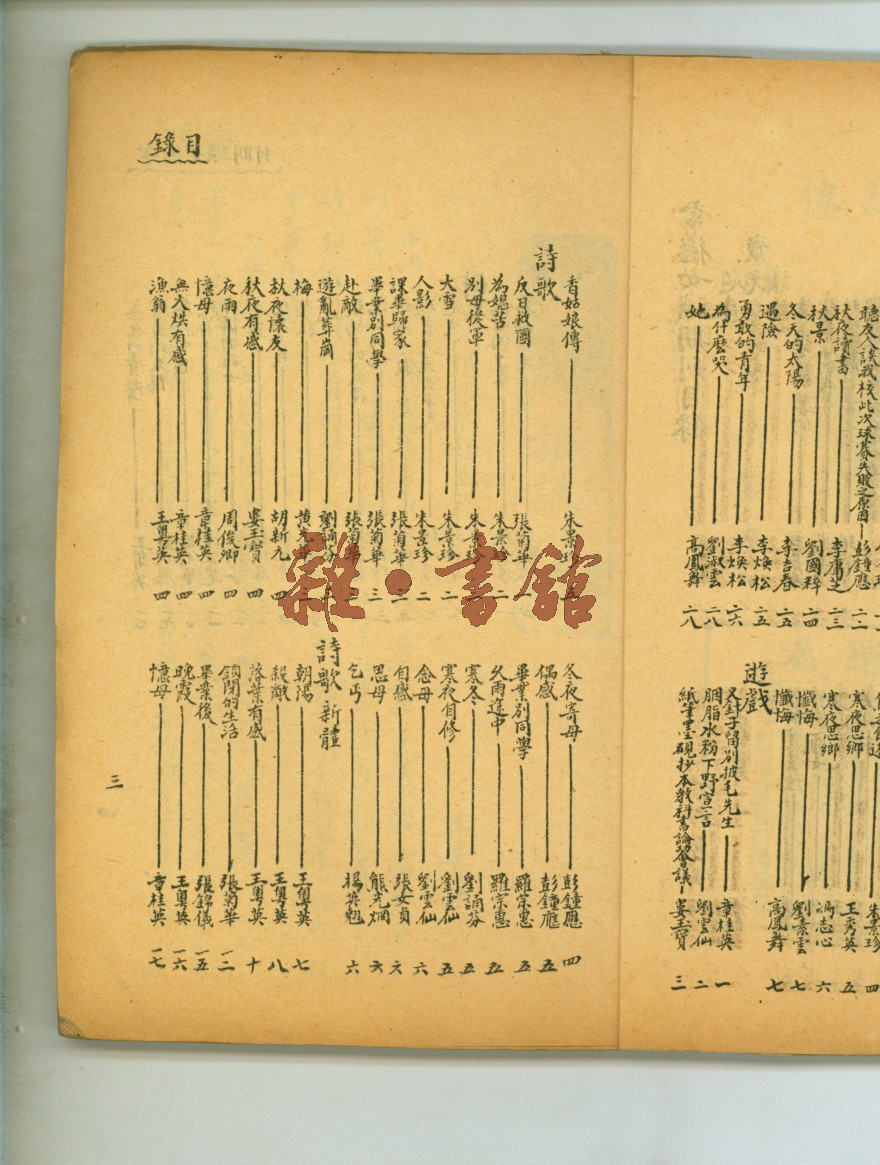 聽友人談我校此次球賽失敗之原因 彭鍾應 二二
秋夜讀書 李庸芝 二三
秋景 劉國釋 二四
冬天的太陽 李吉春 二五
遇險 李煥松 二五
勇敢的青年 李煥松 二六
為什麼哭 劉淑雲 二八
她 高鳳舞 二八
朱景珍 四
寒夜思鄉 王秀英 五
寒夜思鄉 馮志心 六
懺悔 劉素雲 七
懺悔 高鳳舞 七
遊戲
叉針子留別披毛先生 章桂英 一
胭脂水粉下野宣言 劉雲仙 二
紙筆墨硯抄本教科書論發會議 婁玉寶 三
目錄
詩歌
香姑娘傳 朱景珍
反日救國 張菊華
為媳苦 朱景珍 二
別母從軍 朱景珍
大雪 朱景珍 二
人影 朱景珍 二
課畢歸家 張菊華 三
畢業別同學 張菊華 三
赴敵 張菊華
遊亂葬崗 劉誦芬
梅 黃光華
秋夜懷友 胡新元 四
秋夜有感 婁玉寶 四
夜雨 周俊卿 四
憶母 章桂英 四
無火烘有感 章桂英 四
漁翁 王粵英 四
冬夜寄母 彭鍾應 四
偶感 彭鍾應 五
畢業別同學 羅宗惠 五
久雨途中 羅宗惠 五
寒冬 劉誦芬 五
寒夜自修 劉雲仙 五
念母 劉雲仙 六
自感 張女貞 六
思母 熊光烱 六
乞丐 楊英魁 六
詩歌 新體
朝陽 王粵英 七
殺敵 王粵英 八
落葉有感 王粵英 十
鎖閉的生活 張菊華 一二
畢業後 張錦儀 一五
晚霞 王粵英 一六
憶母 章桂英 一七
三
雜·書館